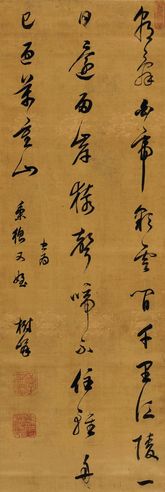 朝辭白帝彩雲間千里江陵一
日還兩岸猿聲啼不住輕舟
已過萬重山
書為